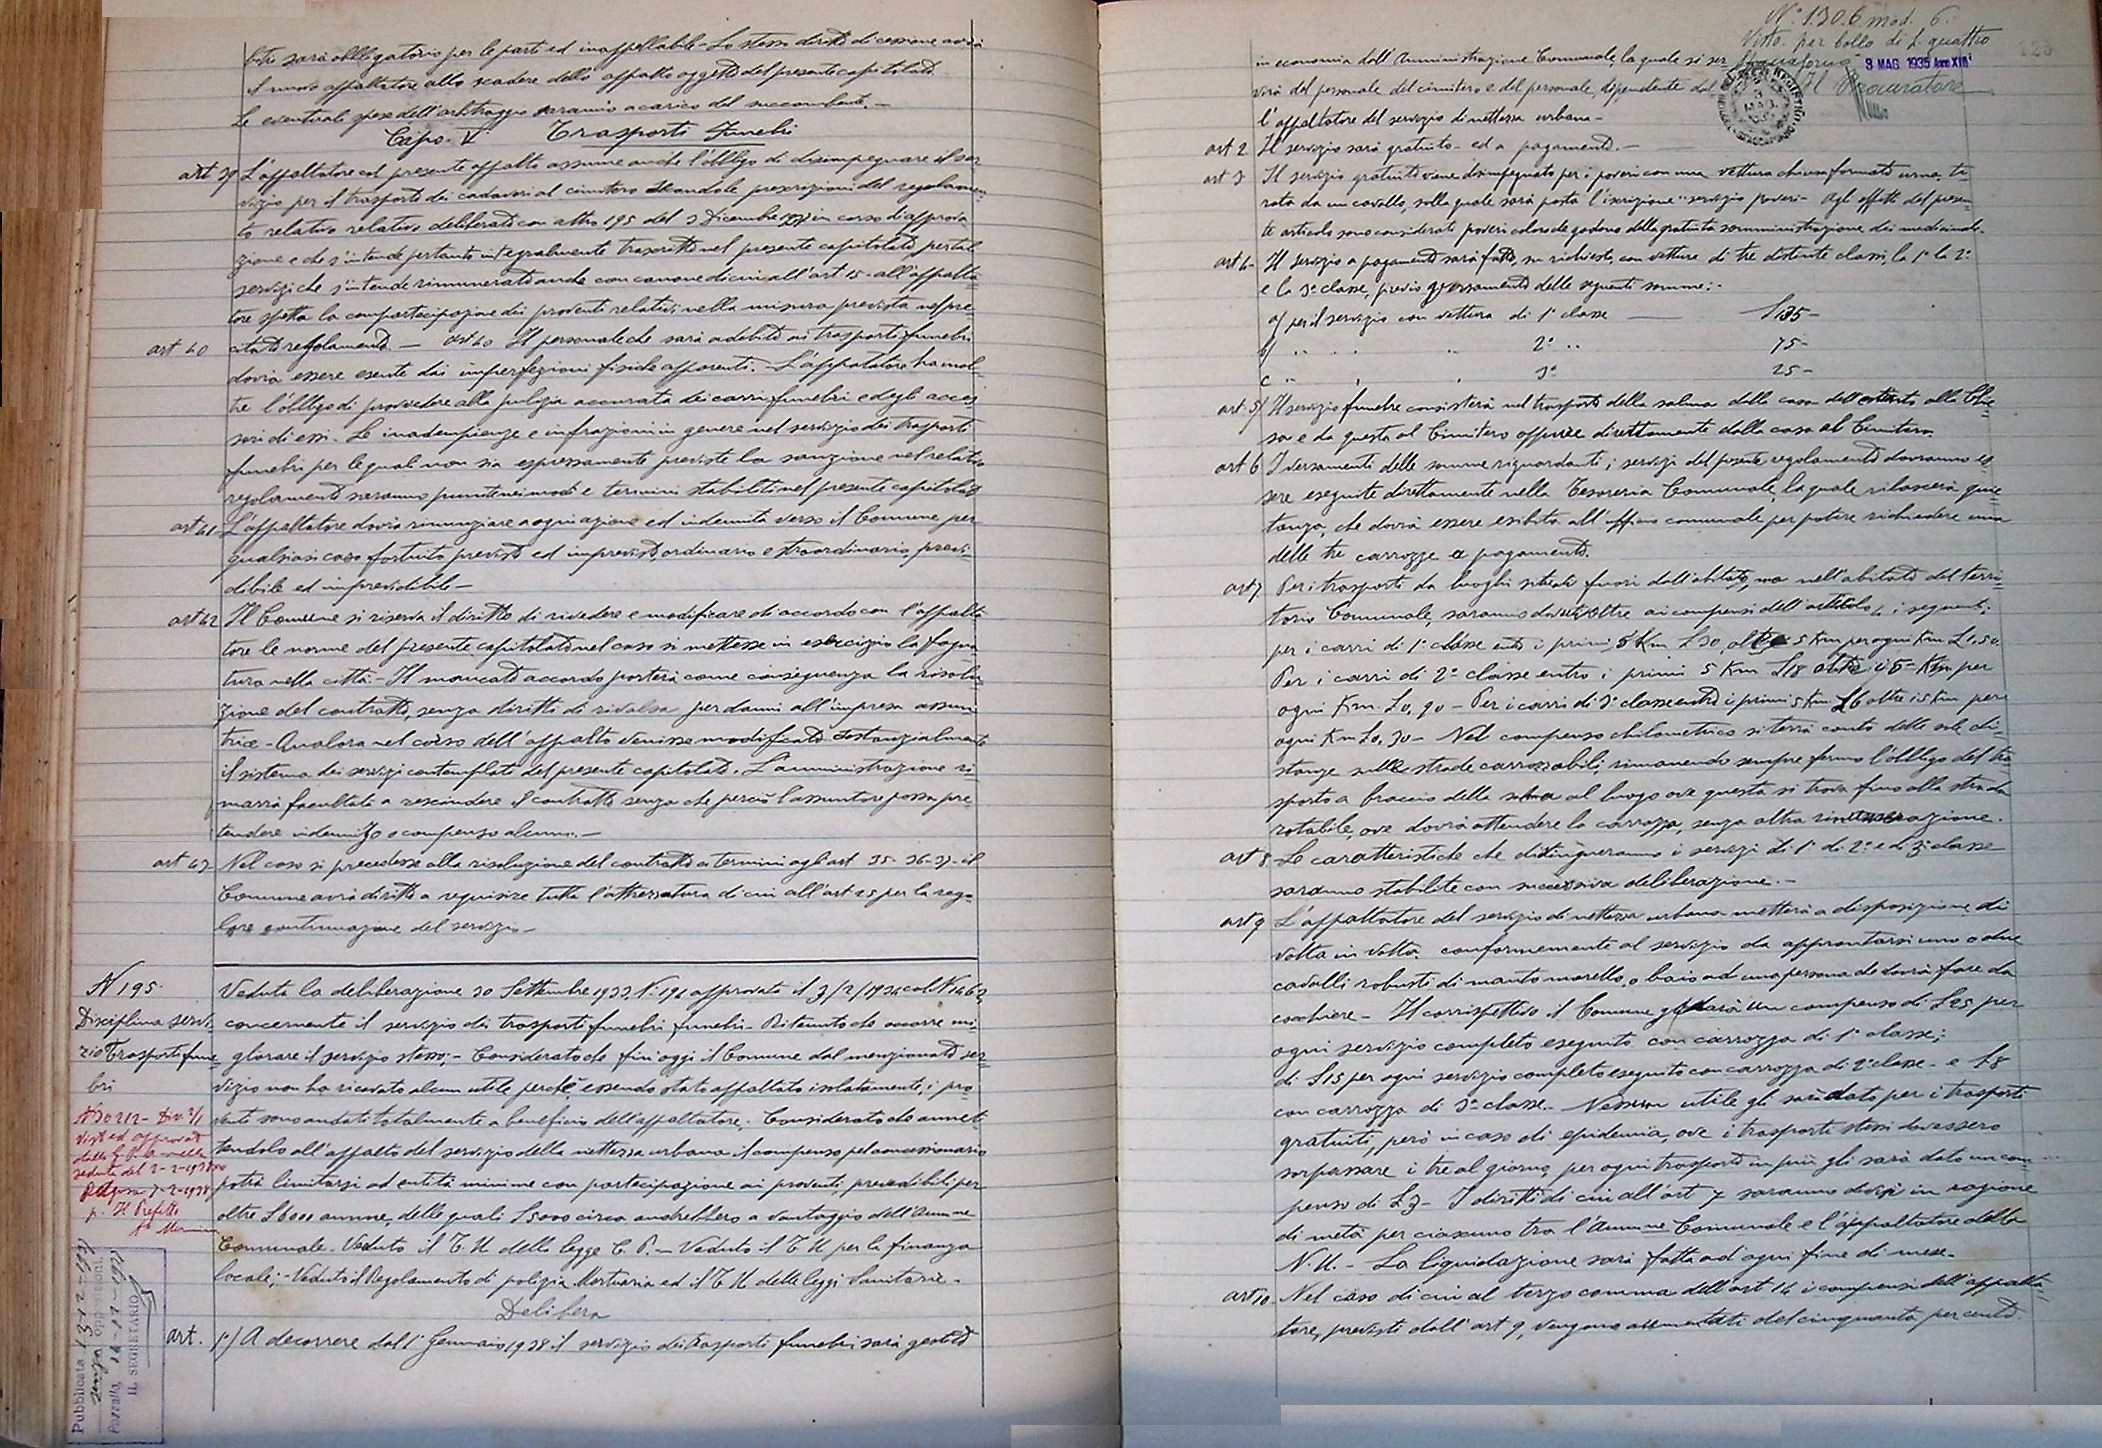 bitri sarà obbligatorio per le parti ed inappellabile - Lo stesso diritto di cessione avrà
il nuovo appaltatore allo scadere dello appalto oggetto del presente capitolato.
Le eventuali spese dell'arbitraggio saranno a carico del soccombente. -
Capo. V° Trasporti Funebri
art 39 L'appaltatore col presente appalto assume anche l'obbligo di disimpegnare il ser
vizio per il trasporto dei cadaveri al cimitero secondo le prescrizioni del regolamen
to relativo relativo deliberato con atto 195 del 3 Dicembre 1937 in corso di approva
zione e che s'intende pertanto integralmente trascritto nel presente capitolato, per tal
servizi che s'intende rimunerato anche con canone di cui all'art 15 - all'appalta
tore spetta la compartecipazione dei proventi relativi nella misura prevista nel pre
citato regolamento. -
art 40 art 40 Il personale che sarà adebito ai trasporti funebri
dovrà essere esente dai imperfezioni fisiche apparenti. L'appaltatore ha inol-
tre l'obbligo di provvedere alla pulizia accurata dei carri funebri e degli acces
sori di essi. Le inadempienze e infrazioni in genere nel servizio dei trasporti
funebri per le quali non sia espressamente previste la sanzione nel relativo
regolamento saranno punite nei modi e termini stabiliti nel presente capitolato
art 41 L'appaltatore dovrà rinunziare a ogni azione ed indennità verso il Comune per
qualsiasi caso fortuito previsto ed imprevisto, ordinario e straordinario, prevu-
dibile ed imprevidibile -
art 42 Il Comune si riserva il diritto di rivedere e modificare di accordo con l'appalta
tore le norme del presente capitolato nel caso si mettesse in esercizio la fogna
tura nella città - Il mancato accordo porterà come conseguenza la risolu
zione del contratto, senza diritti di rivalsa per danni all'impresa assun
trice - Qualora nel corso dell'appalto venisse modificato sostanzialmente
il sistema dei servizi contemplati del presente capitolato. L'amministrazione ri
marrà facultata a rescindere il contratto senza che perciò l'assuntore possa pre
tendere indennizzo o compenso alcuno. -
art 43 Nel caso si procedesse alla risoluzione del contratto a termini agli art 35 - 36 - 37 - il
Comune avrà diritto a requisire tutta l'attrezzatura di cui all'art 25 per la rego-
lare continuazione del servizio -
N 195.
Disciplina servi
zio Trasporti fune
bri
N 30212 - Div 2/1
Visto ed approvato
dalla G.P.A. nella
seduta del 2-2-1938 XVI
Ragusa 7-2-1938
p. Il Prefetto
Pubblicata 13-12-1937
senza opposizioni.
Pozzallo,
IL SEGRETARIO
Veduta la deliberazione 30 Settembre 1933, N. 196 approvata il 3/2/1934 col N 1462
concernente il servizio dei trasporti funebri funebri - Ritenuto che occorre mi
gliorare il servizio stesso; - Considerato che fin'oggi il Comune dal menzionato ser
vizio non ha ricavato alcun utile perchè, essendo stato appaltato isolatamente, i pro
venti sono andati totalmente a beneficio dell'appaltatore. Considerato che annet
tendolo all'appalto del servizio della nettezza urbana il compenso pel concessionario
potrà limitarsi ad entità minime con partecipazione ai proventi, prevedibili per
oltre L6000 annue, delle quali L5000 circa andrebbero a vantaggio dell'Amm.ne
Comunale. Veduto il T.U. della legge C.P. - Veduto il T.U. per la finanza
locale; - Veduto il Regolamento di polizia Mortuaria ed il T.U. delle leggi Sanitarie. -
Delibera
art. 1°/ A decorrere dal 1° Gennaio 1938 il servizio dei trasporti funebri sarà gestito
N° 1306 mod. 6.
Visto per bollo di L. quattro
3 MAG 1935 Anno XIII°
Il Procuratore
in economia dall'Amministrazione Comunale, la quale si ser
virà del personale del cimitero e del personale dipendente dal
l'appaltatore del servizio di nettezza urbana -
art 2 Il servizio sarà gratuito - ed a pagamento. -
art 3 Il servizio gratuito viene disimpegnato per i poveri con una vettura chiusa formato urna, ti-
rata da un cavallo, sulla quale sarà posta l'iscrizione "servizio poveri - Agli effetti del presen-
te articolo sono considerati poveri coloro che godono della gratuita somministrazione dei medicinali.
art 4 - Il servizio a pagamento sarà fatto, su richiesta, con vetture di tre distinte classi, la 1° la 2°
e la 3° classe, previo versamento delle seguenti somme: -
a/ per il servizio con vettura di 1° classe — L 135 -
b/ " " " 2° " 75 -
c " " " 3° 25 -
art. 5/ Il servizio funebre consisterà nel trasporto della salma dalla casa dell'estinto alla Chie
sa e da questa al Cimitero oppure direttamente dalla casa al Cimitero.
art 6 I versamenti delle somme riguardanti i servizi del presente regolamento dovranno es
sere eseguite direttamente nella Tesoreria Comunale, la quale rilascerà quie
tanza, che dovrà essere esibita all'ufficio comunale per potere richiedere una
delle tre carrozze a pagamento.
art 7 Per i trasporti da luoghi situati fuori dall'abitato, ma nell'abitato del terri-
torio Comunale, saranno dovuti oltre ai compensi dell'articolo 4 i seguenti:
per i carri di 1° classe entro i primi 5 Km L 30, oltre 5 Km per ogni Km L 1,50
Per i carri di 2° classe entro i primi 5 Km L18 oltre i 5 Km per
ogni Km. L0,90 - Per i carri di 3° classe entro i primi 5 Km L6 oltre i 5 Km per
ogni Km L0,30 - Nel compenso chilometrico si terrà conto delle sole di-
stanze sulle strade carrozzabili, rimanendo sempre fermo l'obbligo del tra-
sporto a braccio della salma al luogo ove questa si trova fino alla strada
rotabile, ove dovrà attendere la carrozza, senza altra rimunerazione.
art 8 Le caratteristiche che distingueranno i servizi di 1° di 2° e di 3° classe
saranno stabilite con successiva deliberazione. -
art 9 L'appaltatore del servizio di nettezza urbana metterà a disposizione di
volta in volta conformemente al servizio da approntarsi uno o due
cavalli robusti di manto morello, o baio ad una persona che dovrà fare da
cocchiere - Il corrispettivo il Comune gli darà un compenso di L25 per
ogni servizio completo eseguito con carrozza di 1° classe;
di L15 per ogni servizio completo eseguito con carrozza di 2° classe - e L8
con carrozza di 3° classe. Nessun utile gli sarà dato per i trasporti
gratuiti, però in caso di epidemia, ove i trasporti stessi dovessero
sorpassare i tre al giorno, per ogni trasporto in più gli sarà dato un com-
penso di L3 - I diritti di cui all'art 7 saranno divisi in ragione
di metà per ciascuno tra l'Amm.ne Comunale e l'appaltatore della
N.U. - La liquidazione sarà fatta ad ogni fine di mese -
art 10 Nel caso di cui al terzo comma dell'art 14 i compensi dell'appalta-
tore, previsti dall'art 9, vengono aumentati del cinquanta per cento.